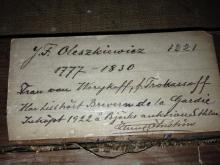 J.F. Oleszkiewicz 1221
1777 - 1830
Fran von f.
Har tillhört Brevern de la Gardie
Inköpt 1922 å Björks auktion Sthlm